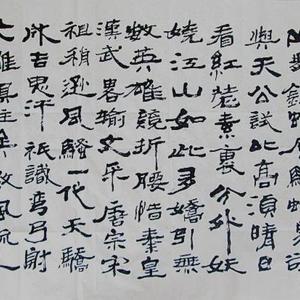 山舞銀蛇原馳蠟象欲
與天公試比高須晴日
看紅裝素裹分外妖
嬈江山如此多嬌引無
數英雄競折腰惜秦皇
漢武畧輸文采唐宗宋
祖稍遜風騷一代天驕
成吉思汗祇識彎弓射
大雕俱往矣數風流人